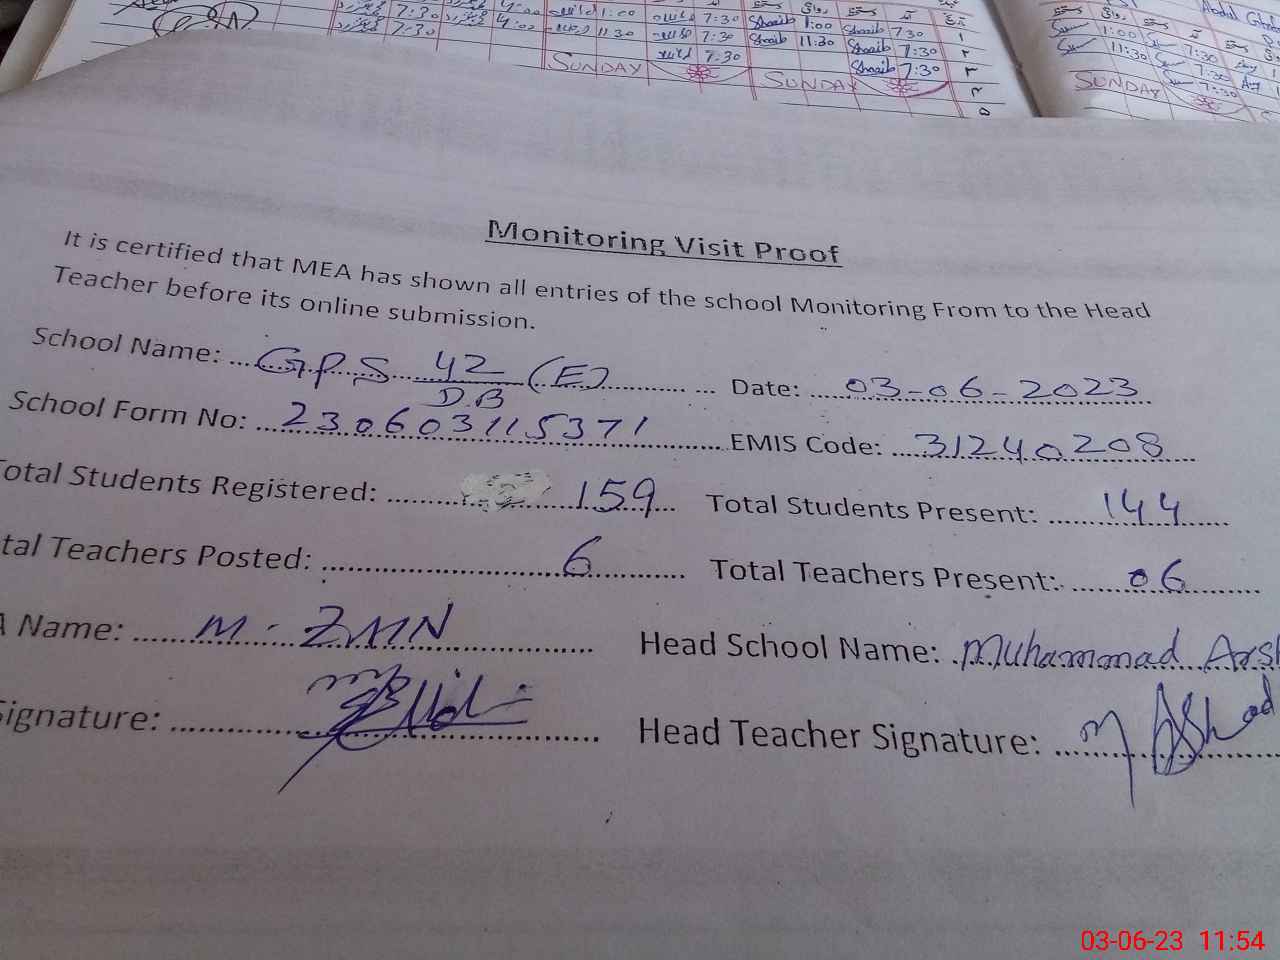 7:30 4:00 1:00 7:30 Shoaib 1:00 Shoaib 7:30 ۱
7:30 4:00 11:30 7:30 Shoaib 11:30 Shoaib 7:30 ۲
SUNDAY 7:30 SUNDAY Shoaib 7:30 ۳
۴
۵
1:00 7:30
11:30 7:30
SUNDAY 7:30
Monitoring Visit Proof
It is certified that MEA has shown all entries of the school Monitoring From to the Head
Teacher before its online submission.
School Name: GPS 42/D.B (E) Date: 03-06-2023
School Form No: 230603115371 EMIS Code: 31240208
Total Students Registered: 159 Total Students Present: 144
tal Teachers Posted: 6 Total Teachers Present: 06
A Name: M. ZMN Head School Name: Muhammad Arsh
Signature: Head Teacher Signature: M Ashad
03-06-23 11:54